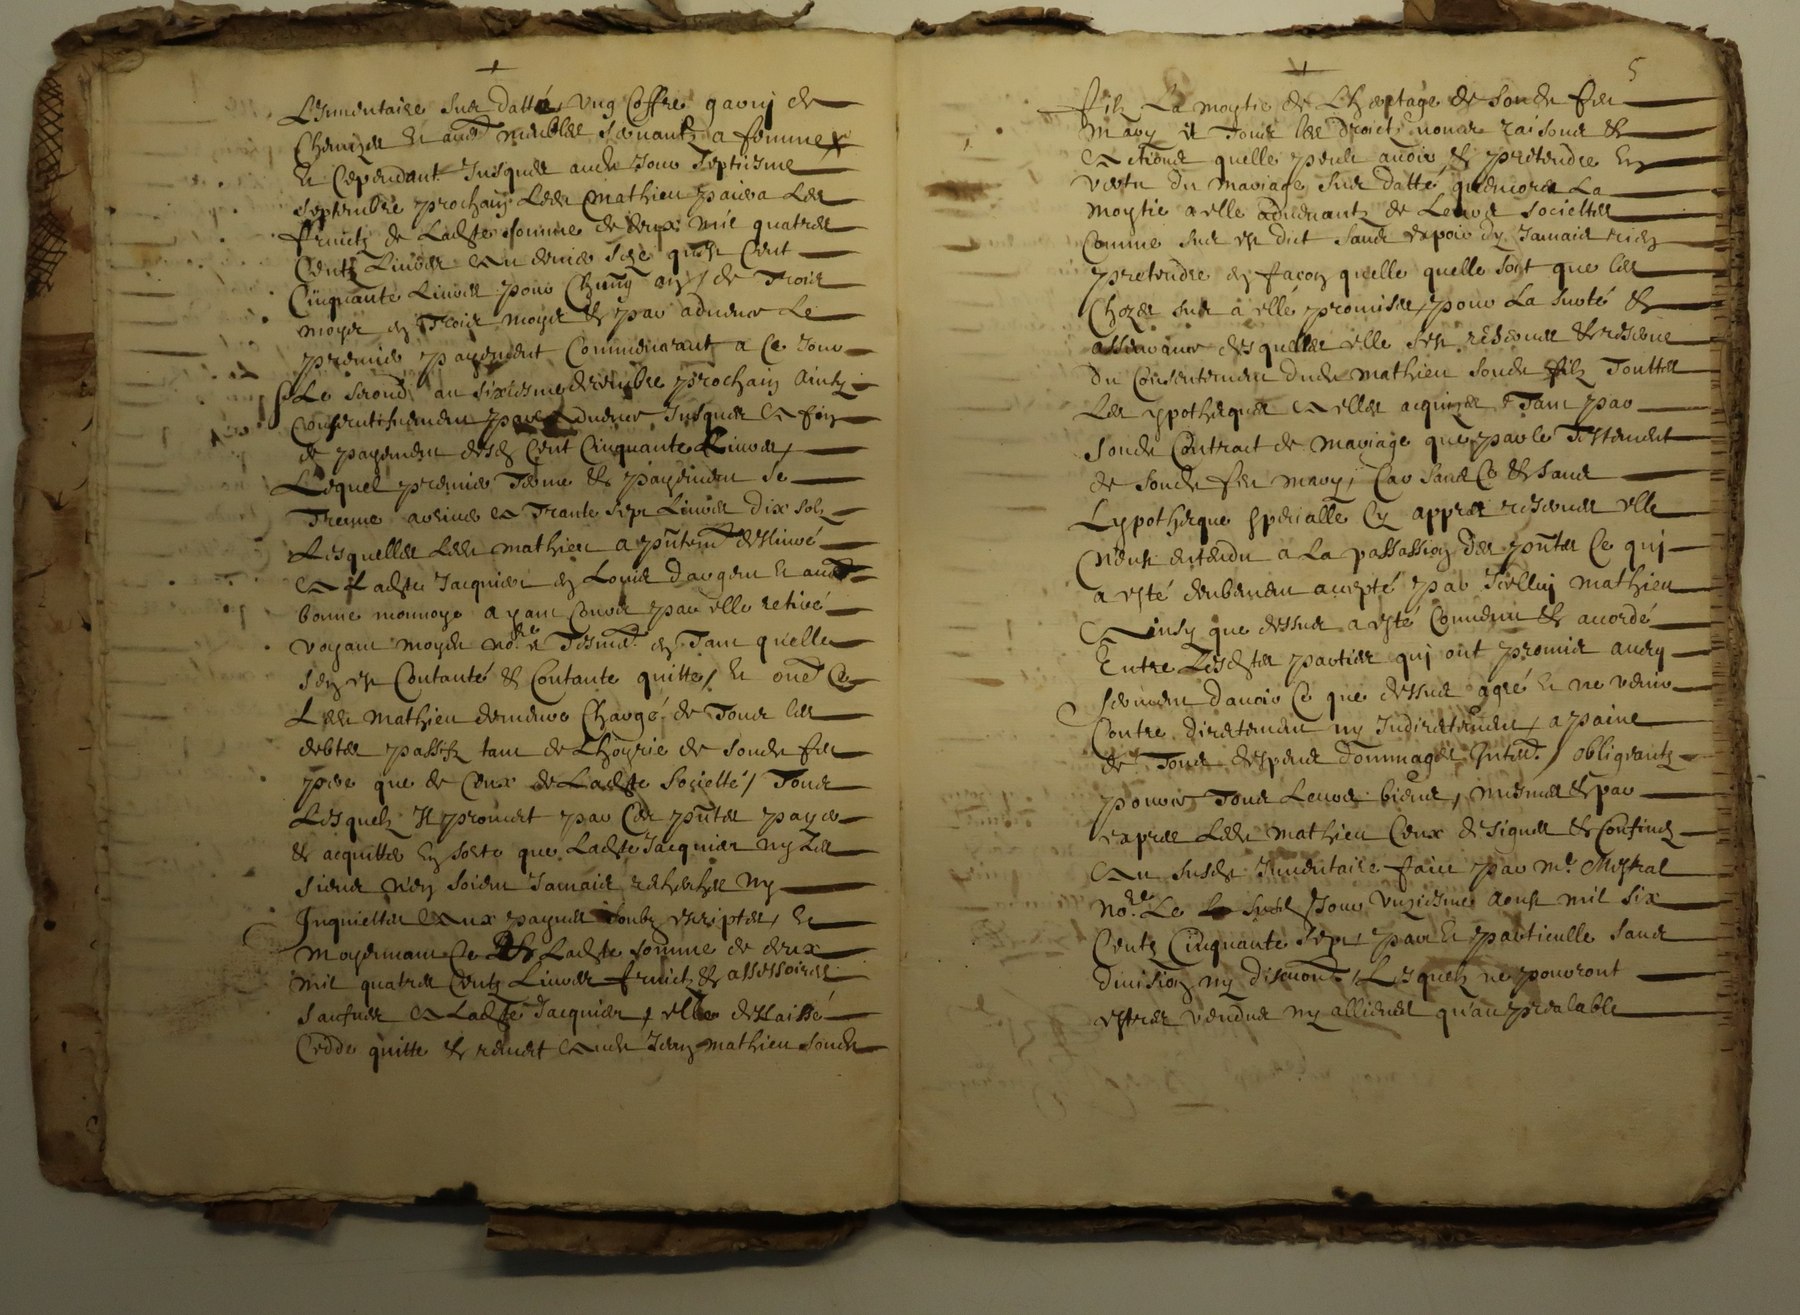 Linventaire sus datté, Ung Coffre garnj de
Chemizes et aues meubles servantz a femme
Et Cependant Jusques audt Jour septiesme
septembre prochain Ledt mathieu paiera Les
fruictz de Ladte somme de deux mil quatres
Centz Livres au denier seze quest Cent
Cinquante Livres pour Chung an, de Trois
moys en Trois moys & par advence Le
premier payement Commencant a Ce Jour
Le second au sixiesme decembre prochain Ainsy
Consecutifvement par advence Jusques a fin
de payement desd Cent Cinquante Livres,
Lequel premier Terme & payement se
Treuve arriver a Trante sept Livres dix solz
Lesquelles Ledt mathieu a pntemt deslivré
a ladte Jacquier en Louis dargent et aue
bonne monnoye ayant Cours par elle retiré
voyant moydt nore & Tesm en Tant quelle
sen est Contanté & Contante quitte, Et oue Ce
Ledt mathieu demeure Chargé de Tous les
debtes passifz tant de Lhoyrie de sondt feu
pere que de Ceux de Ladte Societté, Tous
Lesquelz Il promet par Ces pntes payer
& acquitter En sorte que Ladte Jacquier ny Les
siens nen soient Jamais recherches ny
Inquiettes aux paynes soubz escriptes, Et
moyennant Ce Ladte somme de deux
mil quatres Centz Livres fruictz & assessoires
saufves a Ladte Jacquier, elle deslaissé
Cedde quitte & remet audt Jean mathieu sondt
5
filz La moytie de Lheritage de sondt feu
mary et Tous les droictz noms raisons &
actions quelle peult avoir & pretendre En
vertu du mariage sus datté quencores La
moytie a elle advenantz de Leurs societtes
Comme sus est dict sans espoir dy Jamais rien
pretendre en facon quelle quelle soit que les
Chozes sus a elle promises, pour La surté &
assurance desquelles elle sest reservee & reserve
du Consentement dudt mathieu sondt filz Touttes
Les ypothecques a elles acquizes Tant par
sondt Contract de mariage que par le Testement
de sondt feu mary, Car sans Ce & sans
Lypothecque specialle Cy appres reservee elle
neust entendu a La passassion des pntes Ce quj
a esté deubement accepté par Jcelluj mathieu
Ainsy que dessus a esté Convenu & accordé
Entre Lesdtes parties quj ont promis avecq
serment davoir Ce que dessus agré et ne venir
Contre directement ny Indirectement, a paine
de Tous despens dommages Interes, obligeantz
pour Tous Leurs biens, mesmes & par
expres Ledt mathieu Ceux designes & Confines
au susdt Inventaire faict par me Mistral
nore Le susd Jour unziesme aoust mil six
Centz Cinquante sept, par et particulle sans
division ny discution, Lesquelz ne pouront
estres vendus ny allienes quau prealable